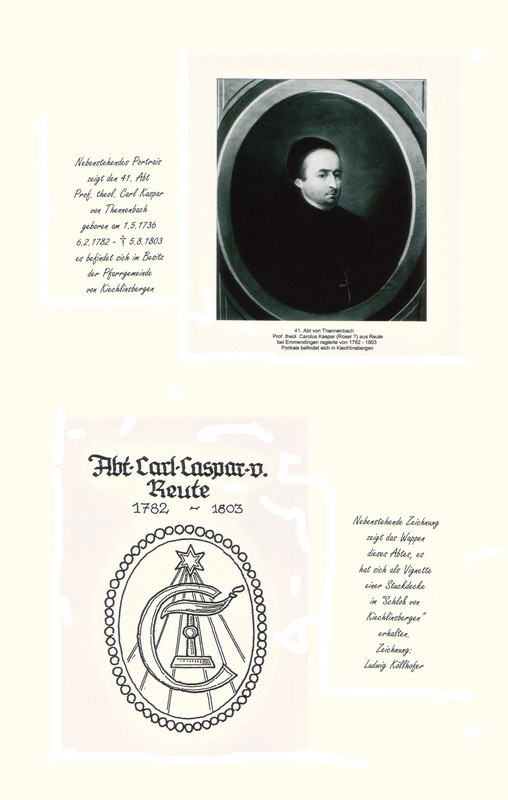 Nebenstehendes Portrais
zeigt den 41. Abt
Prof. theol. Carl Kaspar
von Thennenbach
geboren am 1.5.1736
6.2.1782 - † 5.8.1803
es befindet sich im Besitz
der Pfarrgemeinde
von Kiechlinsbergen
41. Abt von Thennenbach
Prof. theol. Carolus Kaspar (Roser ?) aus Reute
bei Emmendingen regierte von 1782 - 1803
Portrais befindet sich in Kiechlinsbergen
Abt-Carl-Caspar-v.
Reute
1782 ~ 1803
Nebenstehende Zeichnung
zeigt das Wappen
dieses Abtes, es
hat sich als Vignette
einer Stuckdecke
im "Schloß von
Kiechlinsbergen"
erhalten.
Zeichnung:
Ludwig Köllhofer